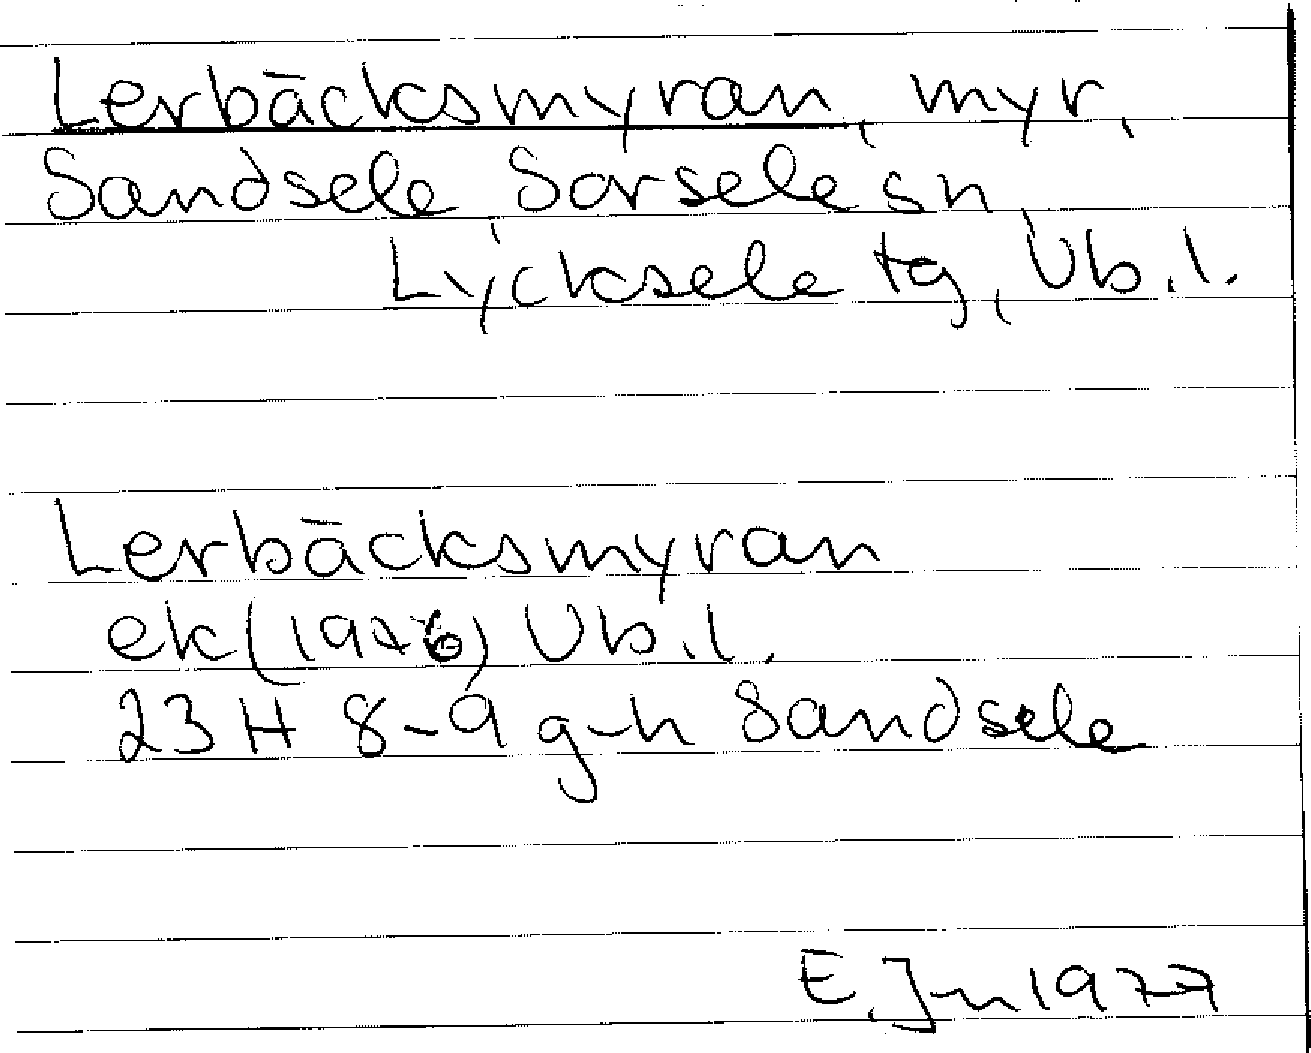 Lerbäcksmyran, myr,
Sandsele, Sorsele sn,
Lycksele tg, Vb.l.
Lerbäcksmyran
ek (1976) Vb.l.
23 H 8-9 g-h Sandsele
E. Jn 1977